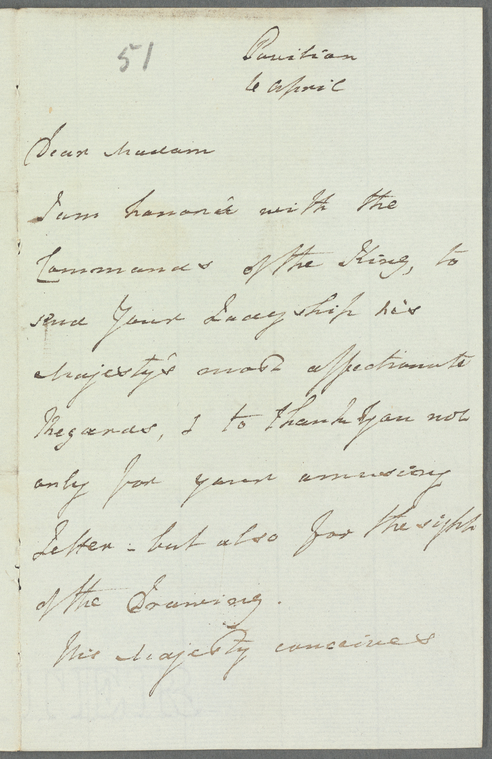 51
Pavilion
6 April
Dear Madam
I am honor'd with the
Commands of the King, to
send Your Ladyship his
Majesty's most affectionate
Regards, & to thank You not
only for your amusing
Letter - but also for the sight
of the Drawing.
His Majesty conceives